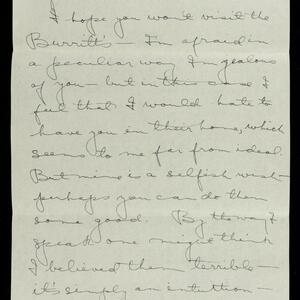 I hope you won't visit the
Burritt's — I'm afraid in
a peculiar way I'm jealous
of you — but in this case I
feel that I would hate to
have you in their home, which
seems to me far from ideal.
But mine is a selfish wish —
perhaps you can do them
some good. By the way I
speak one might think
I believed them terrible —
it's simply an intuition —